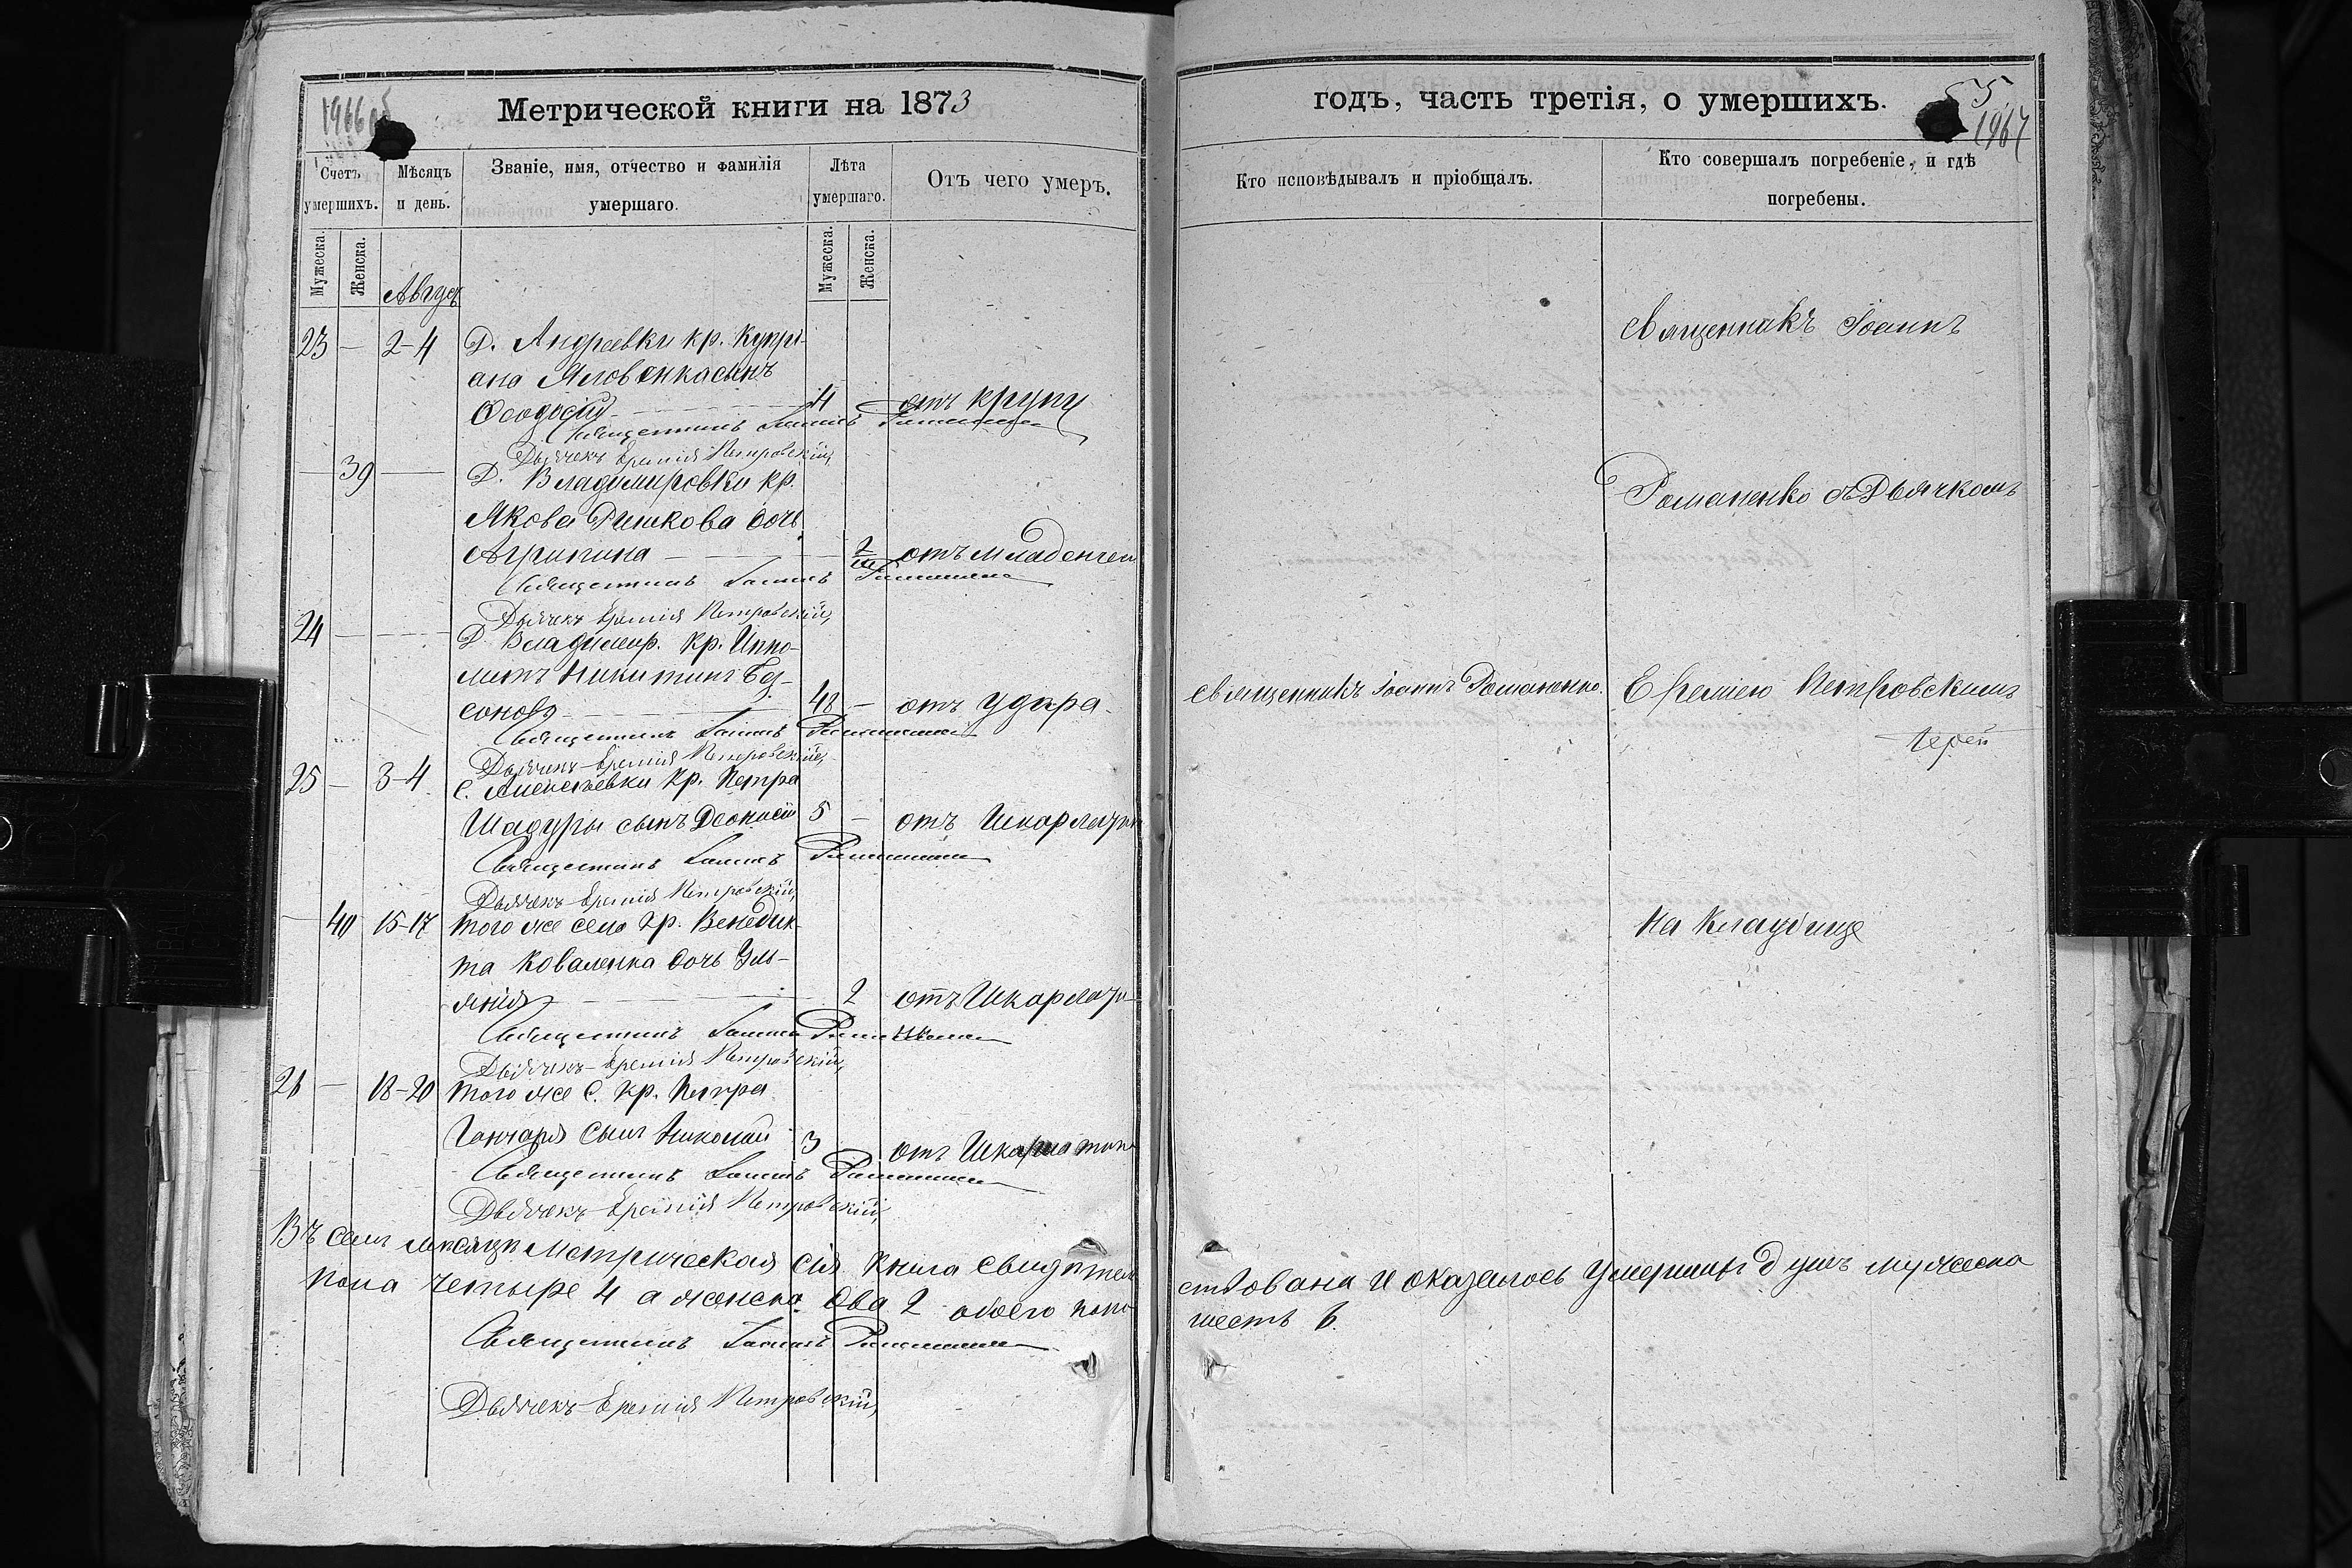 1966 об
Метрической книги на 1873
Счетъ умершихъ.
Мѣсяцъ и день.
Званіе, имя, отчество и фамилія умершаго.
Лѣта умершаго.
Отъ чего умеръ.
Мужеска.
Женска.
Мужеска.
Женска.
Август
23 — 2-4 Д. Андреевки кр. Купрі-
ана Яловенка сынъ
Ѳеодосій 4 отъ крупу
Священникъ Іоаннъ Романенко
Дьячекъ Еремія Петровскій
— 39 — Д. Владимировки кр.
Якова Ришкова дочь
Агрипина отъ младенчес
Священникъ Іоаннъ Романенко
Дьячекъ Еремія Петровскій
24 — Д. Владимір. кр. Иппо-
литъ Никитинъ
48 — отъ удара
Священникъ Іоаннъ Романенко
Дьячекъ Еремія Петровскій
25 — 3-4 с. Алексѣевки кр. Петра
Шадуры сынъ 5 — отъ Шкарлатин
Священникъ Іоаннъ Романенко
Дьячекъ Еремія Петровскій
— 40 15-17 того же села кр. Венедик-
та Коваленка дочь Улі-
янія 2 отъ Шкарлати-
Священникъ Іоаннъ Романенко
Дьячекъ Еремія Петровскій
26 — 18-20 того же с. кр. Петра
Гончаря сынъ Николай 3 отъ Шкарлатин
Священникъ Іоаннъ Романенко
Дьячекъ Еремія Петровскій
Въ семъ мѣсяцѣ Метрическая сія книга свидѣтель
пола четыре 4 а женска два 2 обоего пола
Священникъ Іоаннъ Романенко
Дьячекъ Еремія Петровскій
годъ, часть третія, о умершихъ.
55
1967
Кто исповѣдывалъ и пріобщалъ.
Кто совершалъ погребеніе, и гдѣ погребены.
Священникъ Іоаннъ
Романенко съ Дьячкомъ
священникъ Іоаннъ Романенко.
Ереміею Петровскимъ
На кладбище
ствована и оказалось умершихъ душъ мужеска
шесть 6.